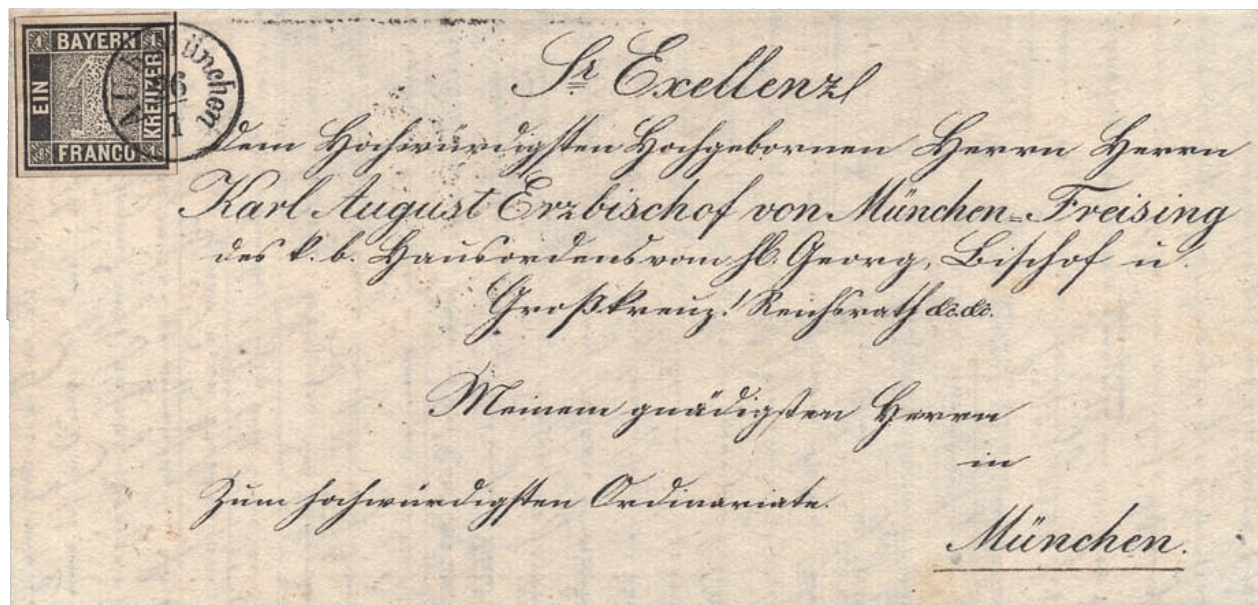 1 BAYERN 1
EIN
1
KREUZER
FRANCO 1
München
Sr Exellenz
dem Hochwürdigsten Hochgebornen Herrn Herrn
Karl August Erzbischof von München-Freising
des k. b. Hausordens vom hl. Georg, Bischof u.
Großkreuz! Reichsrath &c. &c.
Meinem gnädigsten Herrn
in
Zum hochwürdigsten Ordinariate.
München.